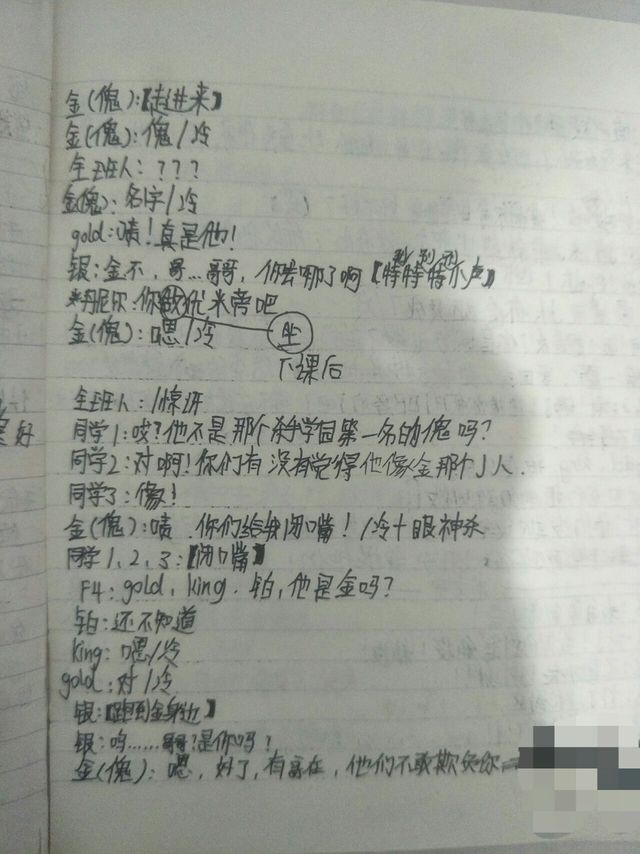 金(傀)：【走进来】
金(傀)：傀/冷
全班人：？？？
金(傀)：名字/冷
gold：啧！真是他！
银：金不，哥…哥哥，你去哪了啊【特特特小声】
米丹尼尔：你做优米旁吧
金(傀)：嗯/冷 坐
下课后
全班人：/惊讶
同学1：哎？他不是那个杀手学园第一名的傀吗？
同学2：对啊！你们有没有觉得他像金那个J人.
同学3：像！
金(傀)：啧.你们给我闭嘴！/冷+眼神杀
同学1,2,3：【闭口嘴】
F4：gold，king.铂，他是金吗？
铂：还不知道
king：嗯/冷
gold：对/冷
银：【跑到金身边】
银：呜……哥哥？是你吗？
金(傀)：嗯，好了，有哥在，他们不敢欺负你